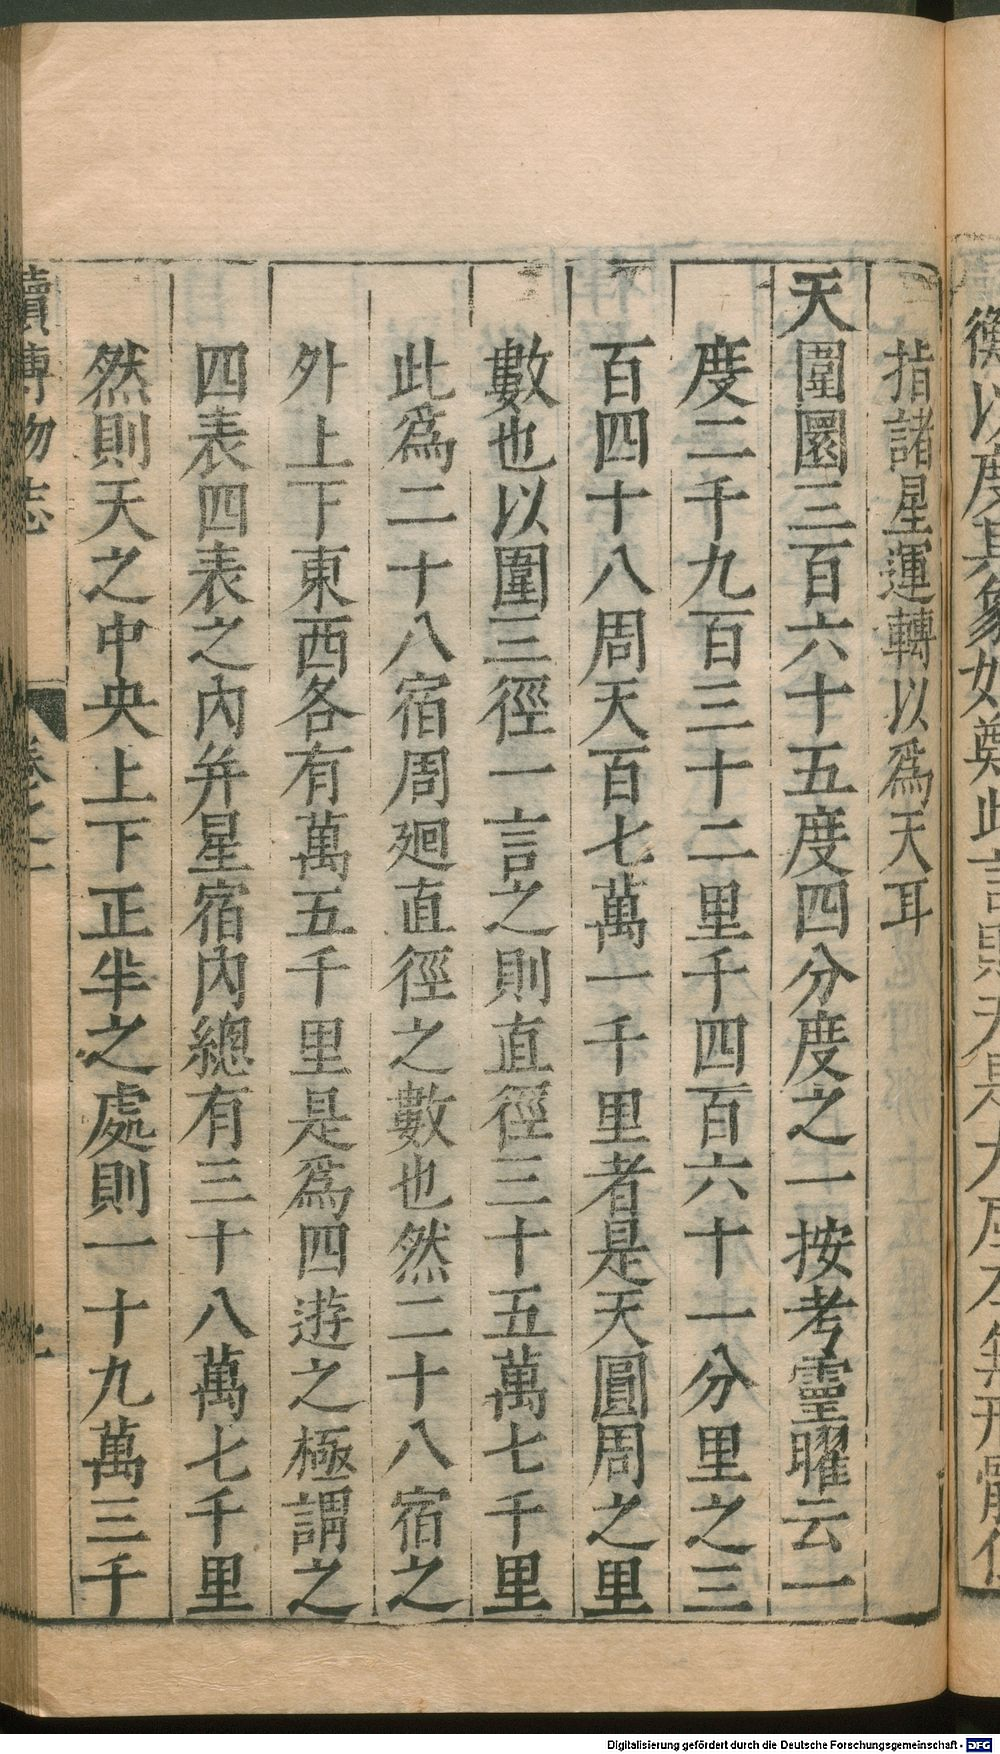 指諸星運轉以爲天耳
天圍圜三百六十五度四分度之一按考靈曜云一
度二千九百三十二里千四百六十一分里之三
百四十八周天百七萬一千里者是天圓周之里
數也以圍三徑一言之則直徑三十五萬七千里
此爲二十八宿周廻直徑之數也然二十八宿之
外上下東西各有萬五千里是爲四遊之極謂之
四表四表之內并星宿內總有三十八萬七千里
然則天之中央上下正半之處則一十九萬三千
博物志
Digitalisierung gefördert durch die Deutsche Forschungsgemeinschaft - DFG